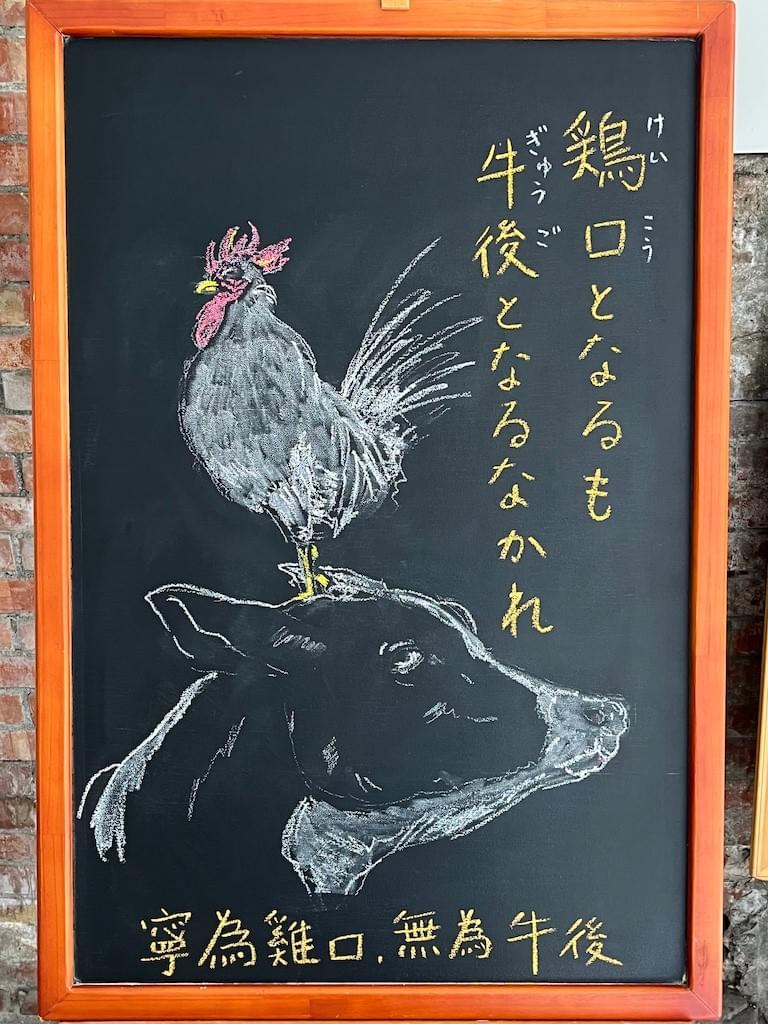 鶏口となるも
けい
こう
牛後となるなかれ
ぎゅう
ご
寧為雞口，無為牛後